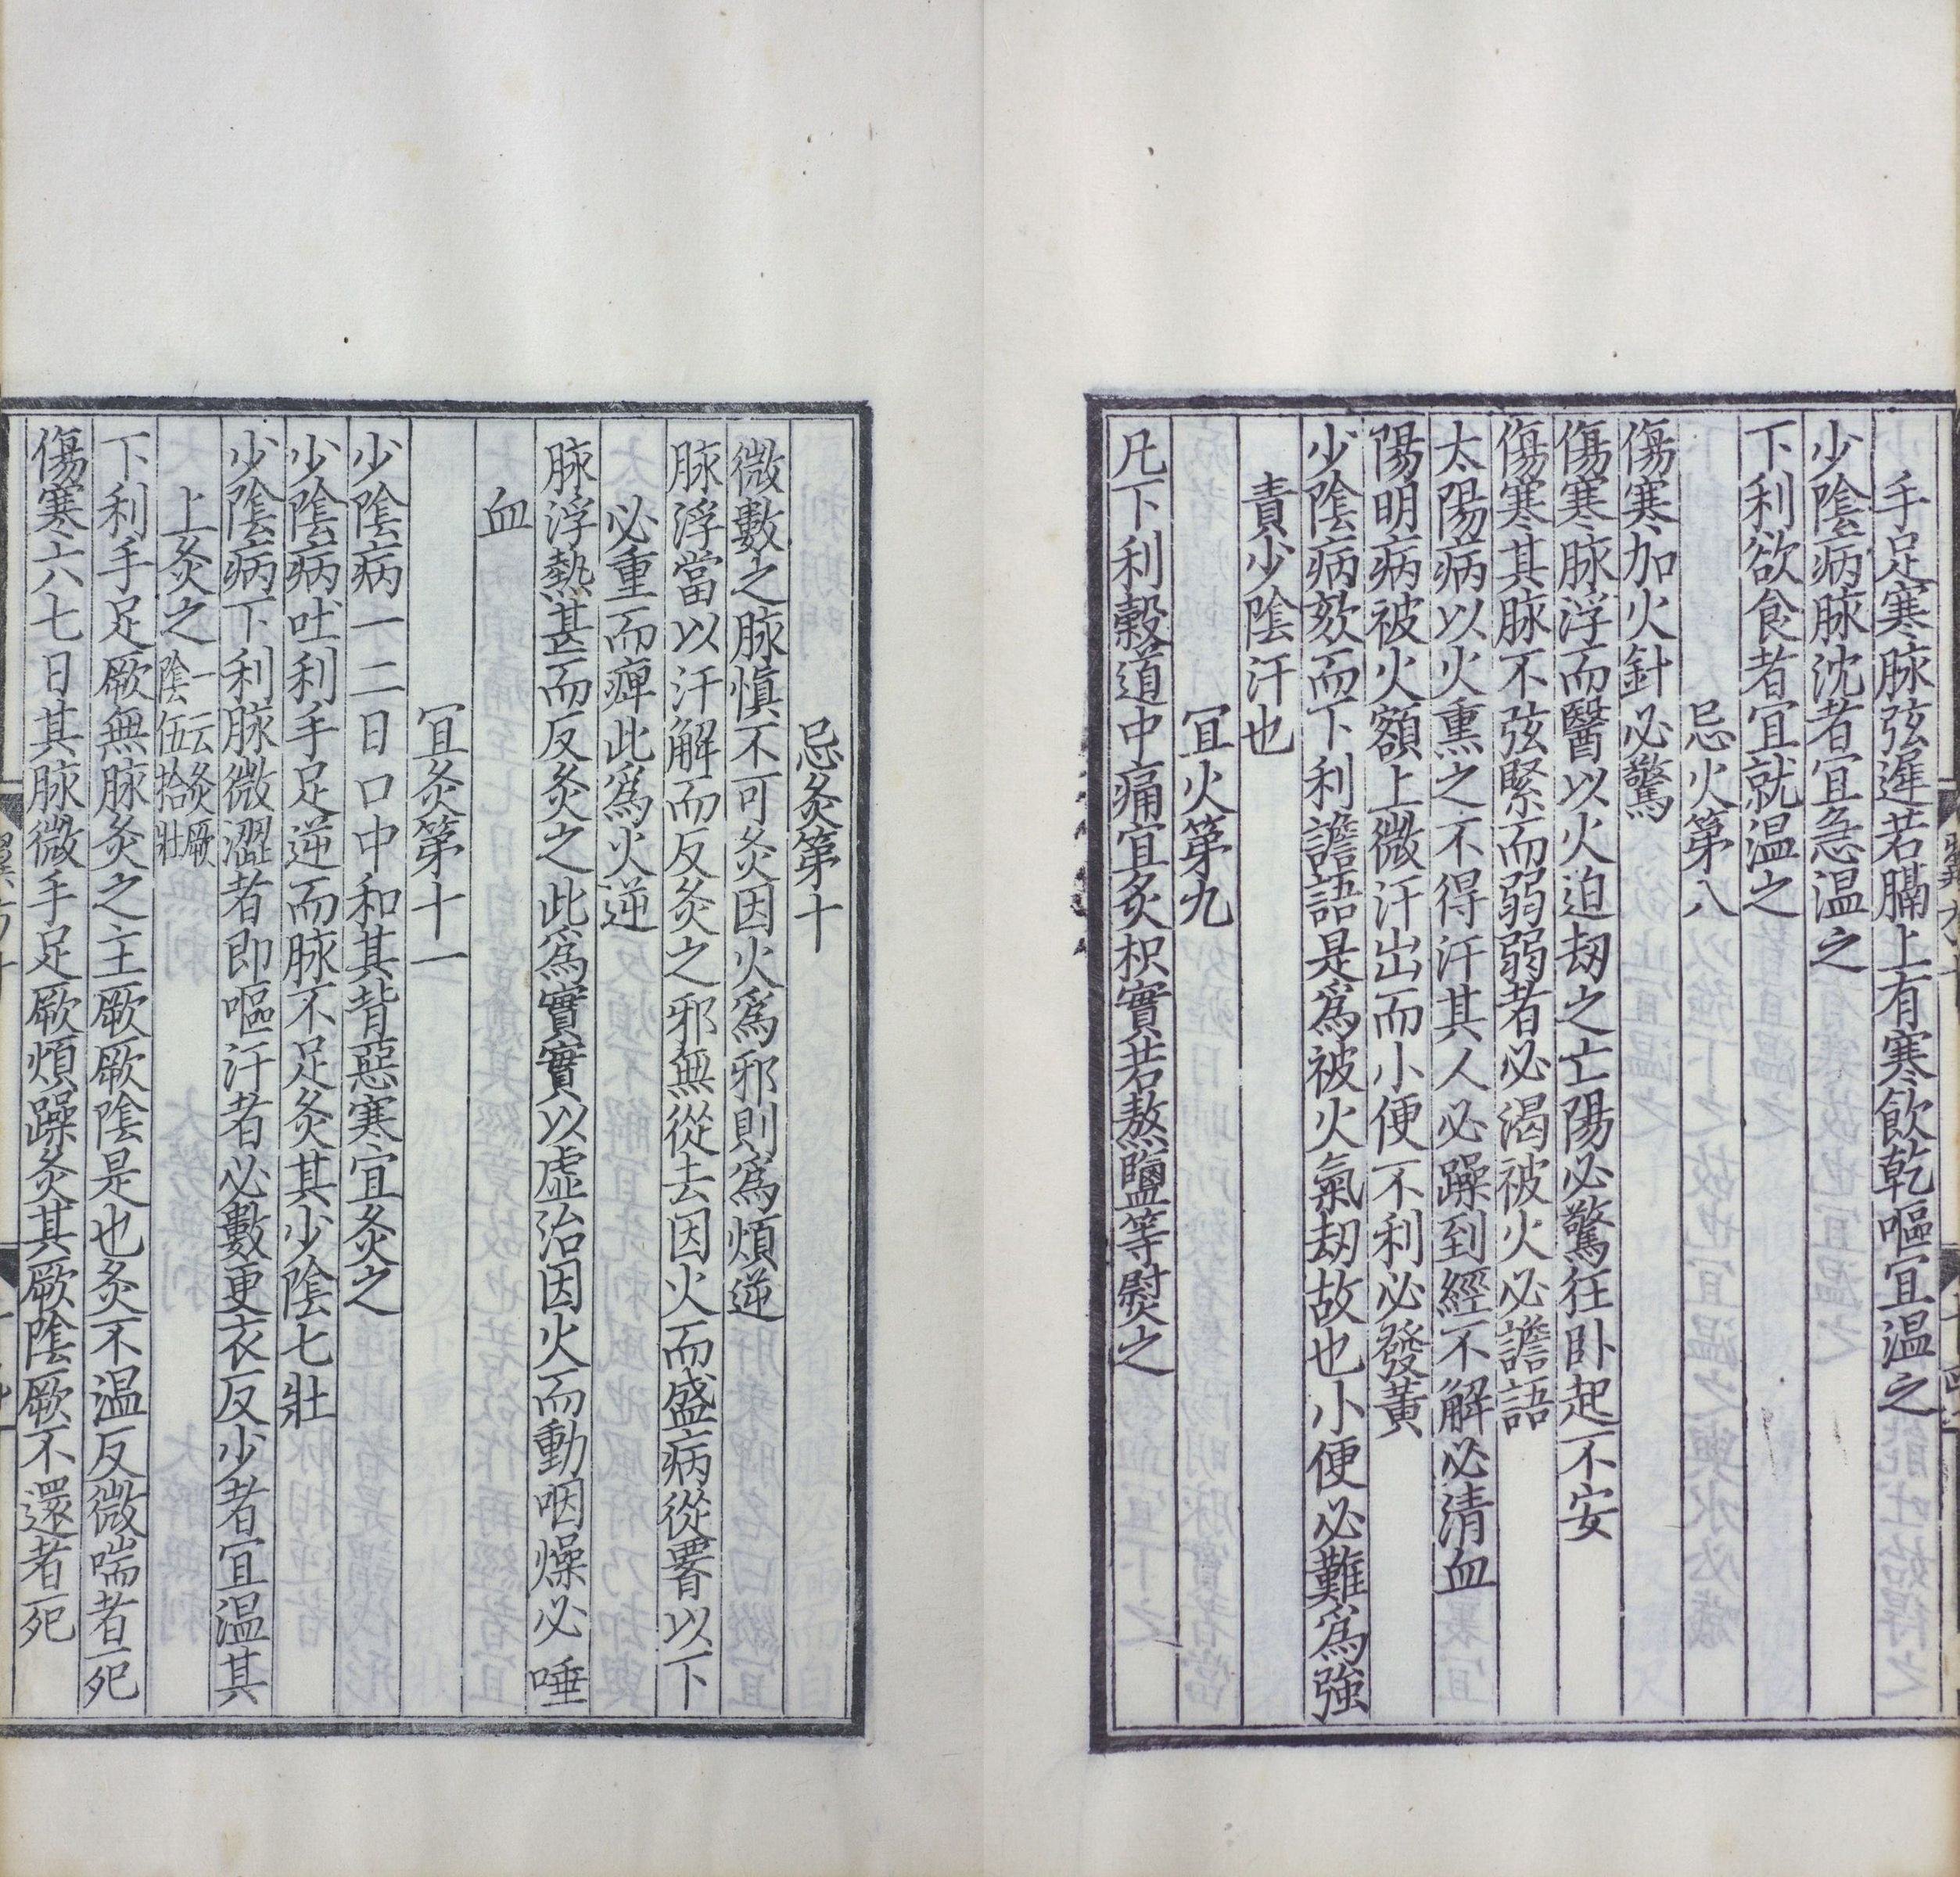 手足寒脉弦遲若膈上有寒飲乾嘔宜温之
少陰病脉沈者宜急温之
下利欲食者宜就温之
忌火第八
傷寒加火針必驚
傷寒脉浮而醫以火迫刼之亡陽必驚狂卧起不安
傷寒其脉不弦緊而弱弱者必渴被火必譫語
太陽病以火熏之不得汗其人必躁到經不解必清血
陽明病被火額上微汗出而小便不利必發黃
少陰病欬而下利譫語是爲被火氣刼故也小便必難爲強
責少陰汗也
宜火第九
凡下利穀道中痛宜炙枳實若熬鹽等熨之
忌灸第十
微數之脉慎不可灸因火爲邪則爲煩逆
脉浮當以汗解而反灸之邪無從去因火而盛病從署以下
必重而痺此爲火逆
脉浮熱甚而反灸之此爲實實以虛治因火而動咽燥必唾
血
宜灸第十一
少陰病一二日口中和其背惡寒宜灸之
少陰病吐利手足逆而脉不足灸其少陰七壯
少陰病下利脉微澀者即嘔汗者必數更衣反少者宜温其
上灸之一云灸厥陰伍拾壯
下利手足厥無脉灸之主厥厥陰是也灸不温反微喘者死
傷寒六七日其脉微手足厥煩躁灸其厥陰厥不還者死